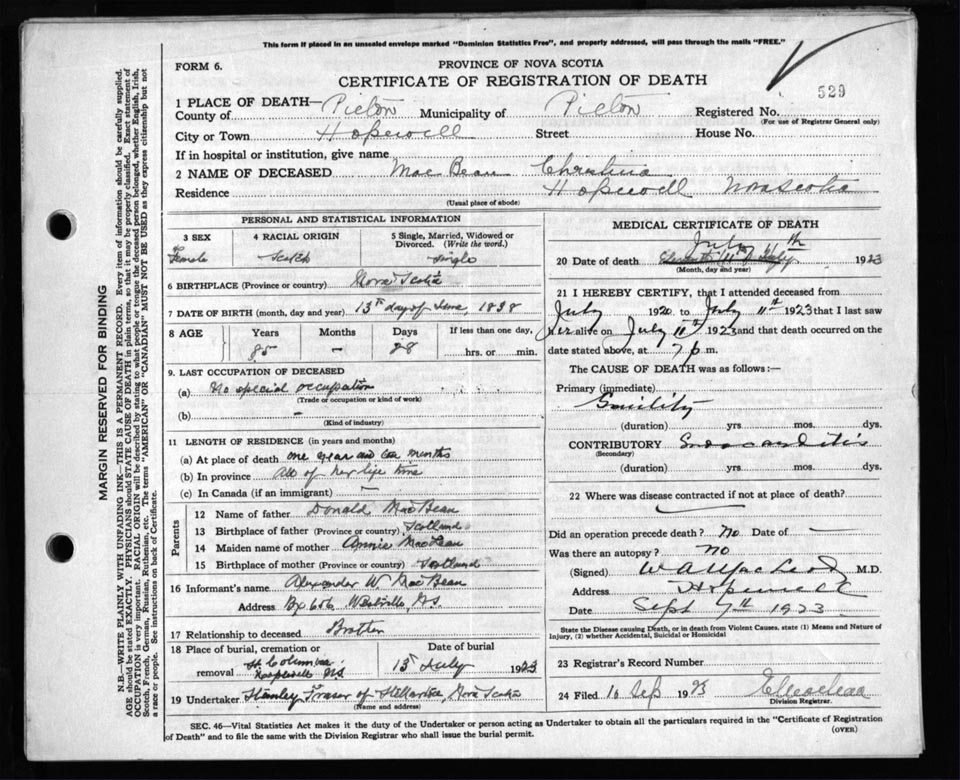 This form if placed in an unsealed envelope marked "Dominion Statistics Free", and properly addressed, will pass through the mails "FREE."
FORM 6.
PROVINCE OF NOVA SCOTIA
CERTIFICATE OF REGISTRATION OF DEATH
529
1 PLACE OF DEATH—
County of Pictou Municipality of Pictou Registered No.
(For use of Registrar General only)
City or Town Hopewell Street House No.
If in hospital or institution, give name
2 NAME OF DECEASED Mac Bean Christina
Residence Hopewell Nova Scotia
(Usual place of abode)
PERSONAL AND STATISTICAL INFORMATION
3 SEX
Female
4 RACIAL ORIGIN
Scotch
5 Single, Married, Widowed or Divorced. (Write the word.)
single
6 BIRTHPLACE (Province or country) Nova Scotia
7 DATE OF BIRTH (month, day and year) 13th day of June, 1838
8 AGE Years Months Days If less than one day,
85 – 28 hrs. or min.
9. LAST OCCUPATION OF DECEASED
(a) No special occupation
(Trade or occupation or kind of work)
(b) –
(Kind of industry)
11 LENGTH OF RESIDENCE (in years and months)
(a) At place of death one year and months
(b) In province All of her life time
(c) In Canada (if an immigrant) –
Parents
12 Name of father Donald MacBean
13 Birthplace of father (Province or country) Scotland
14 Maiden name of mother Annie MacLean
15 Birthplace of mother (Province or country) Scotland
16 Informant's name Alexander W MacBean
Address Bx 656 Westville, NS
17 Relationship to deceased Brother
18 Place of burial, cremation or removal St Columba Hopewell NS
Date of burial
13 July 1923
19 Undertaker Stanley Fraser of Stellarton, Nova Scotia
(Name and address)
MEDICAL CERTIFICATE OF DEATH
20 Date of death July 11th 1923
(Month, day and year)
21 I HEREBY CERTIFY, that I attended deceased from
July 1920 to July 11th 1923 that I last saw
her alive on July 11th 1923 and that death occurred on
date stated above, at 7 p.m.
The CAUSE OF DEATH was as follows:—
Primary (immediate)
Senility
(duration) yrs mos. dys.
CONTRIBUTORY
(Secondary)
(duration) yrs. mos. dys.
22 Where was disease contracted if not at place of death?
Did an operation precede death? No Date of —
Was there an autopsy? No
(Signed) W A MacLeod M.D.
Address Hopewell
Date Sept 7th 1923
State the Disease causing Death, or in death from Violent Causes, state (1) Means and Nature of Injury, (2) whether Accidental, Suicidal or Homicidal
23 Registrar's Record Number
24 Filed 16 Sep 1923
Division Registrar.
SEC. 46—Vital Statistics Act makes it the duty of the Undertaker or person acting as Undertaker to obtain all the particulars required in the "Certificate of Registration
of Death" and to file the same with the Division Registrar who shall issue the burial permit.
(OVER)
MARGIN RESERVED FOR BINDING
N.B.—WRITE PLAINLY WITH UNFADING INK—THIS IS A PERMANENT RECORD. Every item of information should be carefully supplied.
AGE should be stated EXACTLY. PHYSICIANS should STATE CAUSE OF DEATH in plain terms, so that it may be properly classified. Exact statement of
OCCUPATION is very important. RACIAL ORIGIN will be described by stating to what people or tongue the deceased person belonged, whether English, Irish,
Scotch, French, German, Russian, Ruthenian, etc. The terms "AMERICAN" OR "CANADIAN" MUST NOT BE USED as they express citizenship but not
a race or people. See instructions on back of Certificate.